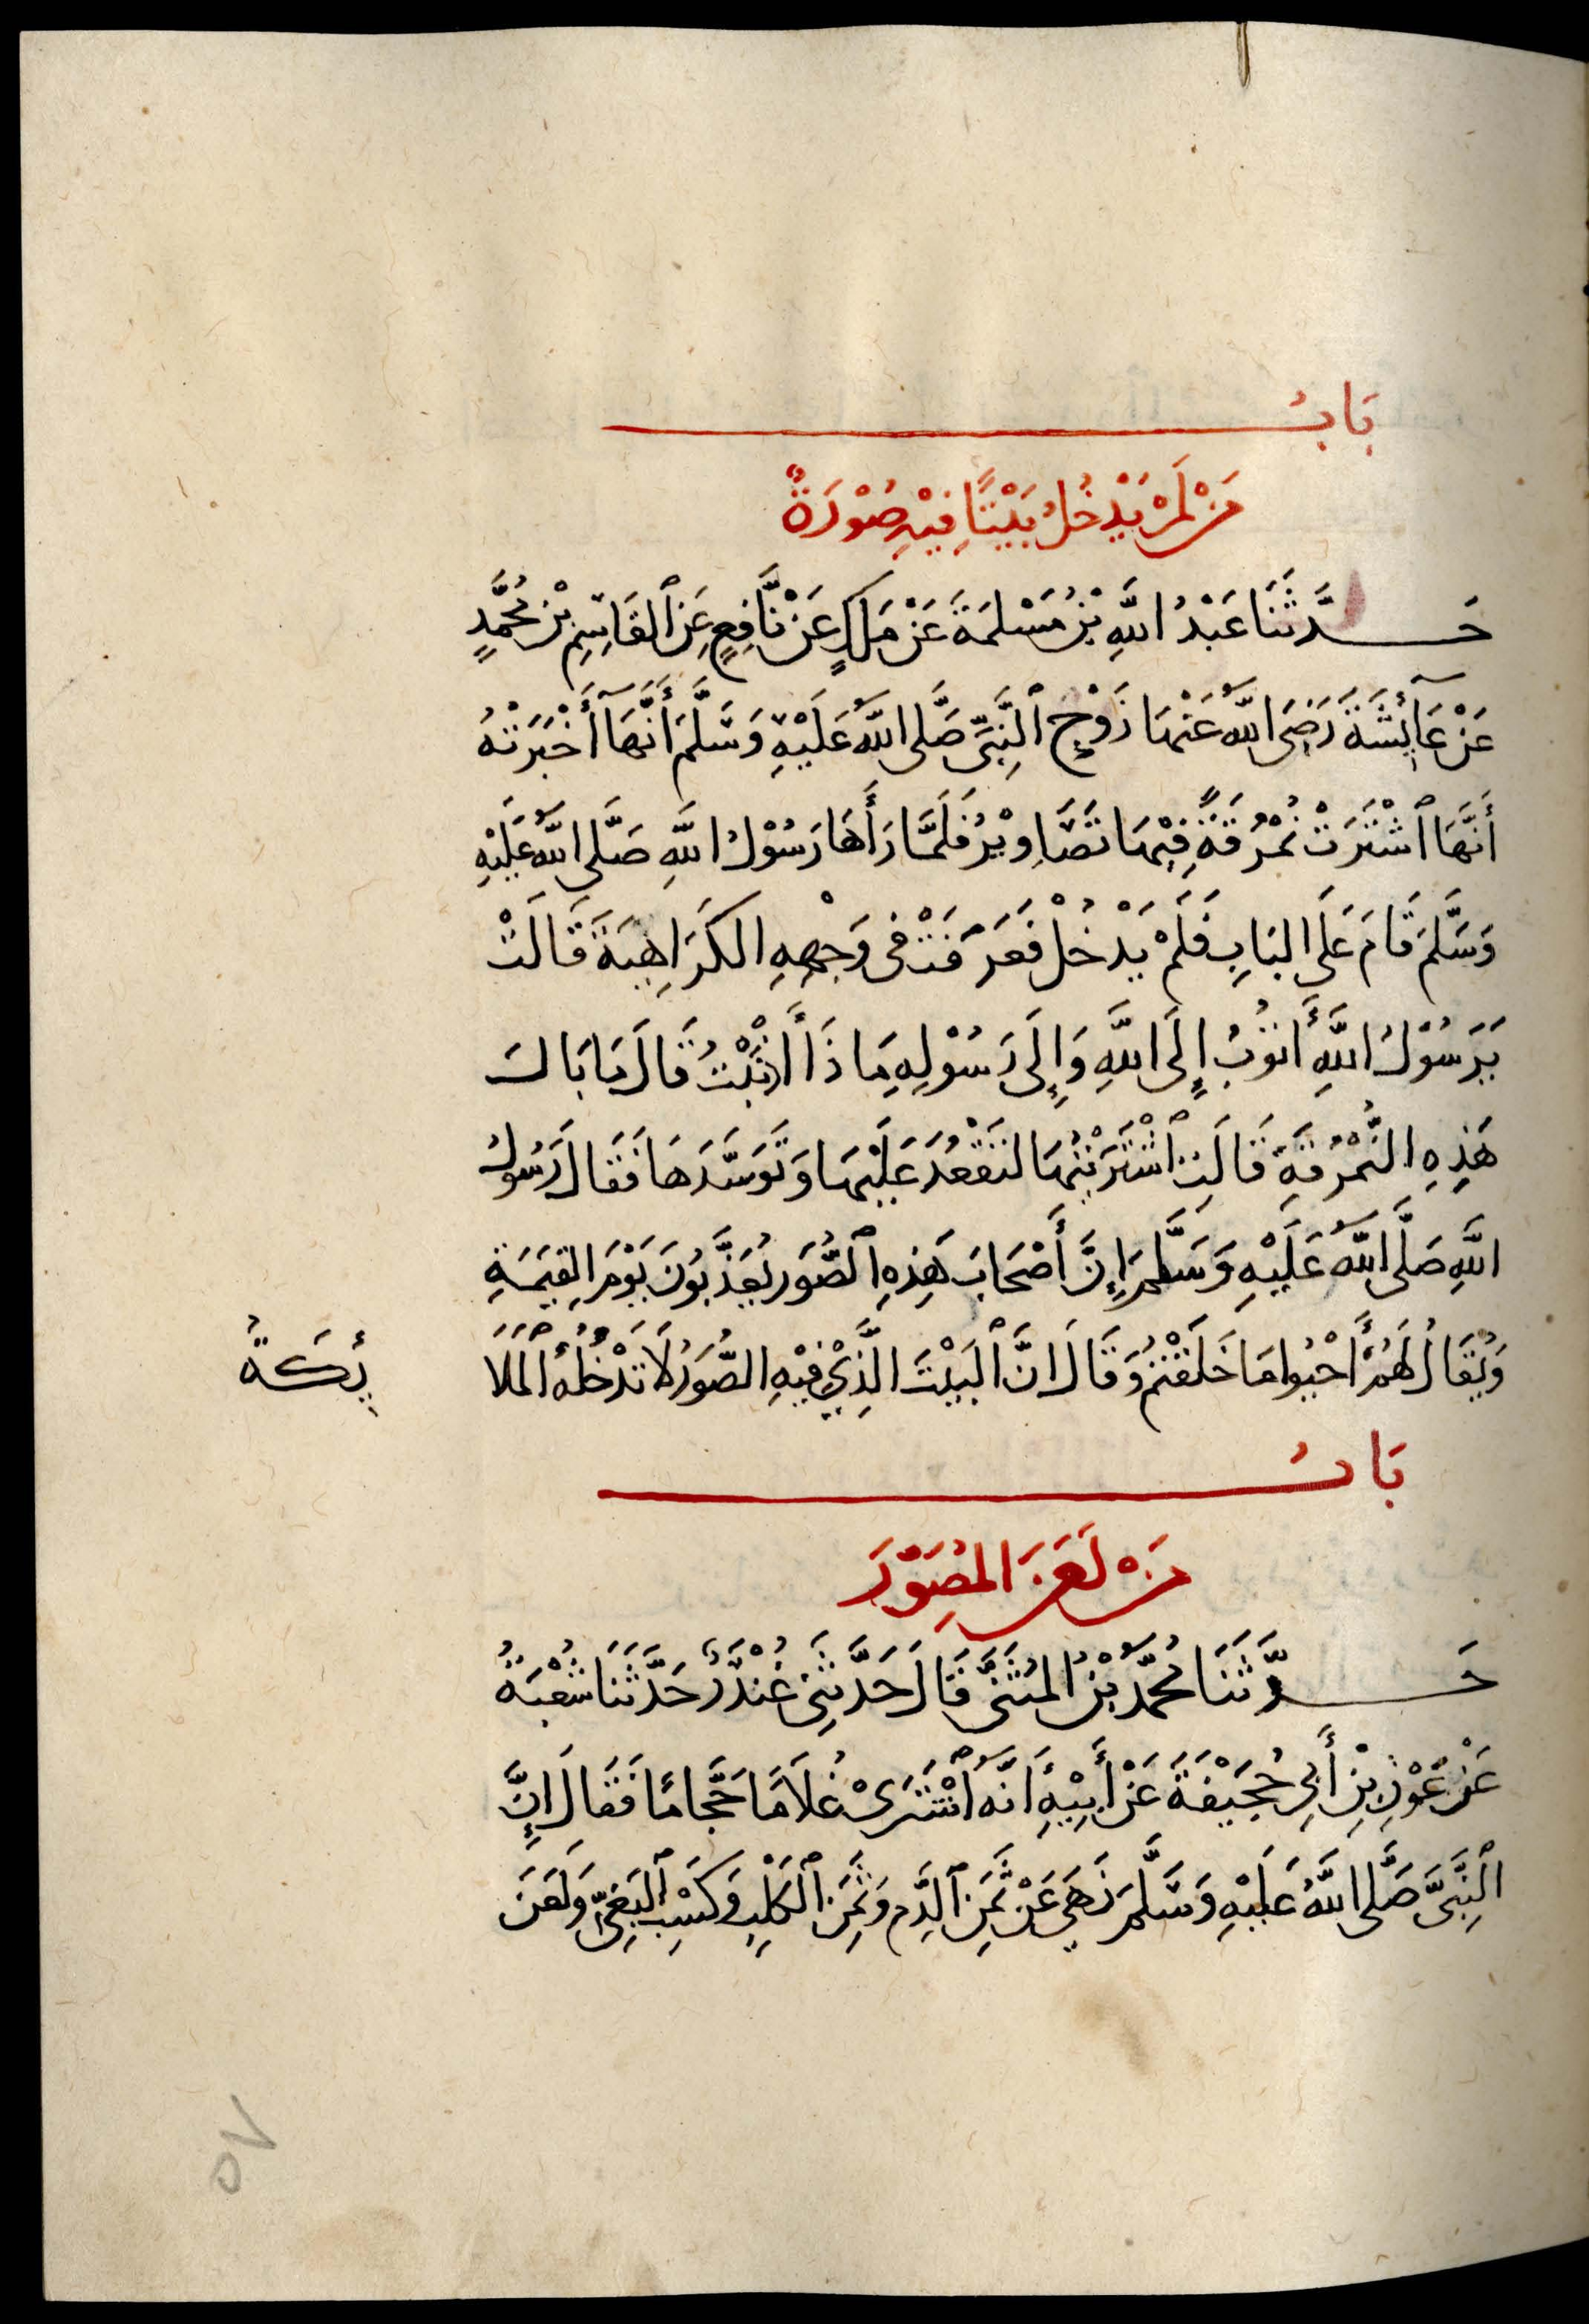 بَابُ
مَنْ لَمْ يَدْخُلْ بَيْتًا فِيْهِ صُوْرَةٌ
حَدَّثَنَا عَبْدُ اللَّهِ بْنُ مَسْلَمَةَ عَنْ مَلِكٍ عَنْ نَّافِعٍ عَنِ ٱلقَاسِمِ بْنِ مُحَمَّدٍ
عَنْ عَآئِشَةَ رَضِىَ اللَّهُ عَنْهَا زَوْجِ ٱلنَّبِىِّ صَلَّى اللَّهُ عَلَيْهِ وَسَلَّمَ أَنَّهَا أَخْبَرَتْهُ
أَنَّهَا ٱشْتَرَتْ نُمْرُقَةً فِيْهَا تَصَاوِيْرُ فَلَمَّا رَأَهَا رَسُوْلُ اللَّهِ صَلَّى اللَّهُ عَلَيْهِ
وَسَلَّمَ قَامَ عَلَى البَابِ فَلَمْ يَدْخُلْ فَعَرَفَتْ فى وَجْهِهِ الكَرَاهِيَةَ قَالَتْ
يَرَسُوْلَ اللَّهِ أَتُوْبُ إِلَى اللَّهِ وَإِلَى رَسُوْلِهِ مَا ذَا أَذْنَبْتُ قَالَ مَا بَالُ
هَذِهِ النُّمْرُقَةِ قَالَتِ ٱشْتَرَيْتُهَا لتَقْعُدَ عَلَيْهَا وَتَوَسَّدَهَا فَقَالَ رَسُولُ
اللَّهِ صَلَّى اللَّهُ عَلَيْهِ وَسَلَّمَ إِنَّ أَصْحَابَ هَذِهِ ٱلصُّوَرِ يُعَذَّبُونَ يَوْمَ القِيَمَةِ
وَيُقَالُ لَهُمْ أَحْيُوا مَا خَلَقْتُمْ وَقَالَ انَّ ٱلبَيْتَ الَّذِيْ فِيْهِ الصُّوَرُ لَا تَدْخُلُهُ ٱلمَلَا
ئِكَةُ
بَابُ
مَنْ لَعَنَ المُصَوِّرَ
حَدَّثَنَا مُحَمَّدُ بْنُ المُثَنَّى قَالَ حَدَّثَنِى غُنْدَرٌ حَدَّثَنَا شُعْبَةُ
عَنْ عَوْنِ بْنِ أَبِى جُحَيْفَةَ عَنْ أَبِيْهِ أَنَّهُ ٱشْتَرَىْ غُلَامًا حَجَّامًا فَقَالَ إِنَّ
ٱلنَّبِىَّ صَلَّى اللَّهُ عَلَيْهِ وَسَلَّمَ نَهَى عَنْ ثَمَنِ ٱلدَّمِ وَثَمَنِ ٱلكَلْبِ وَكَسْبِ ٱلبَغِىِّ وَلَعَنَ
10